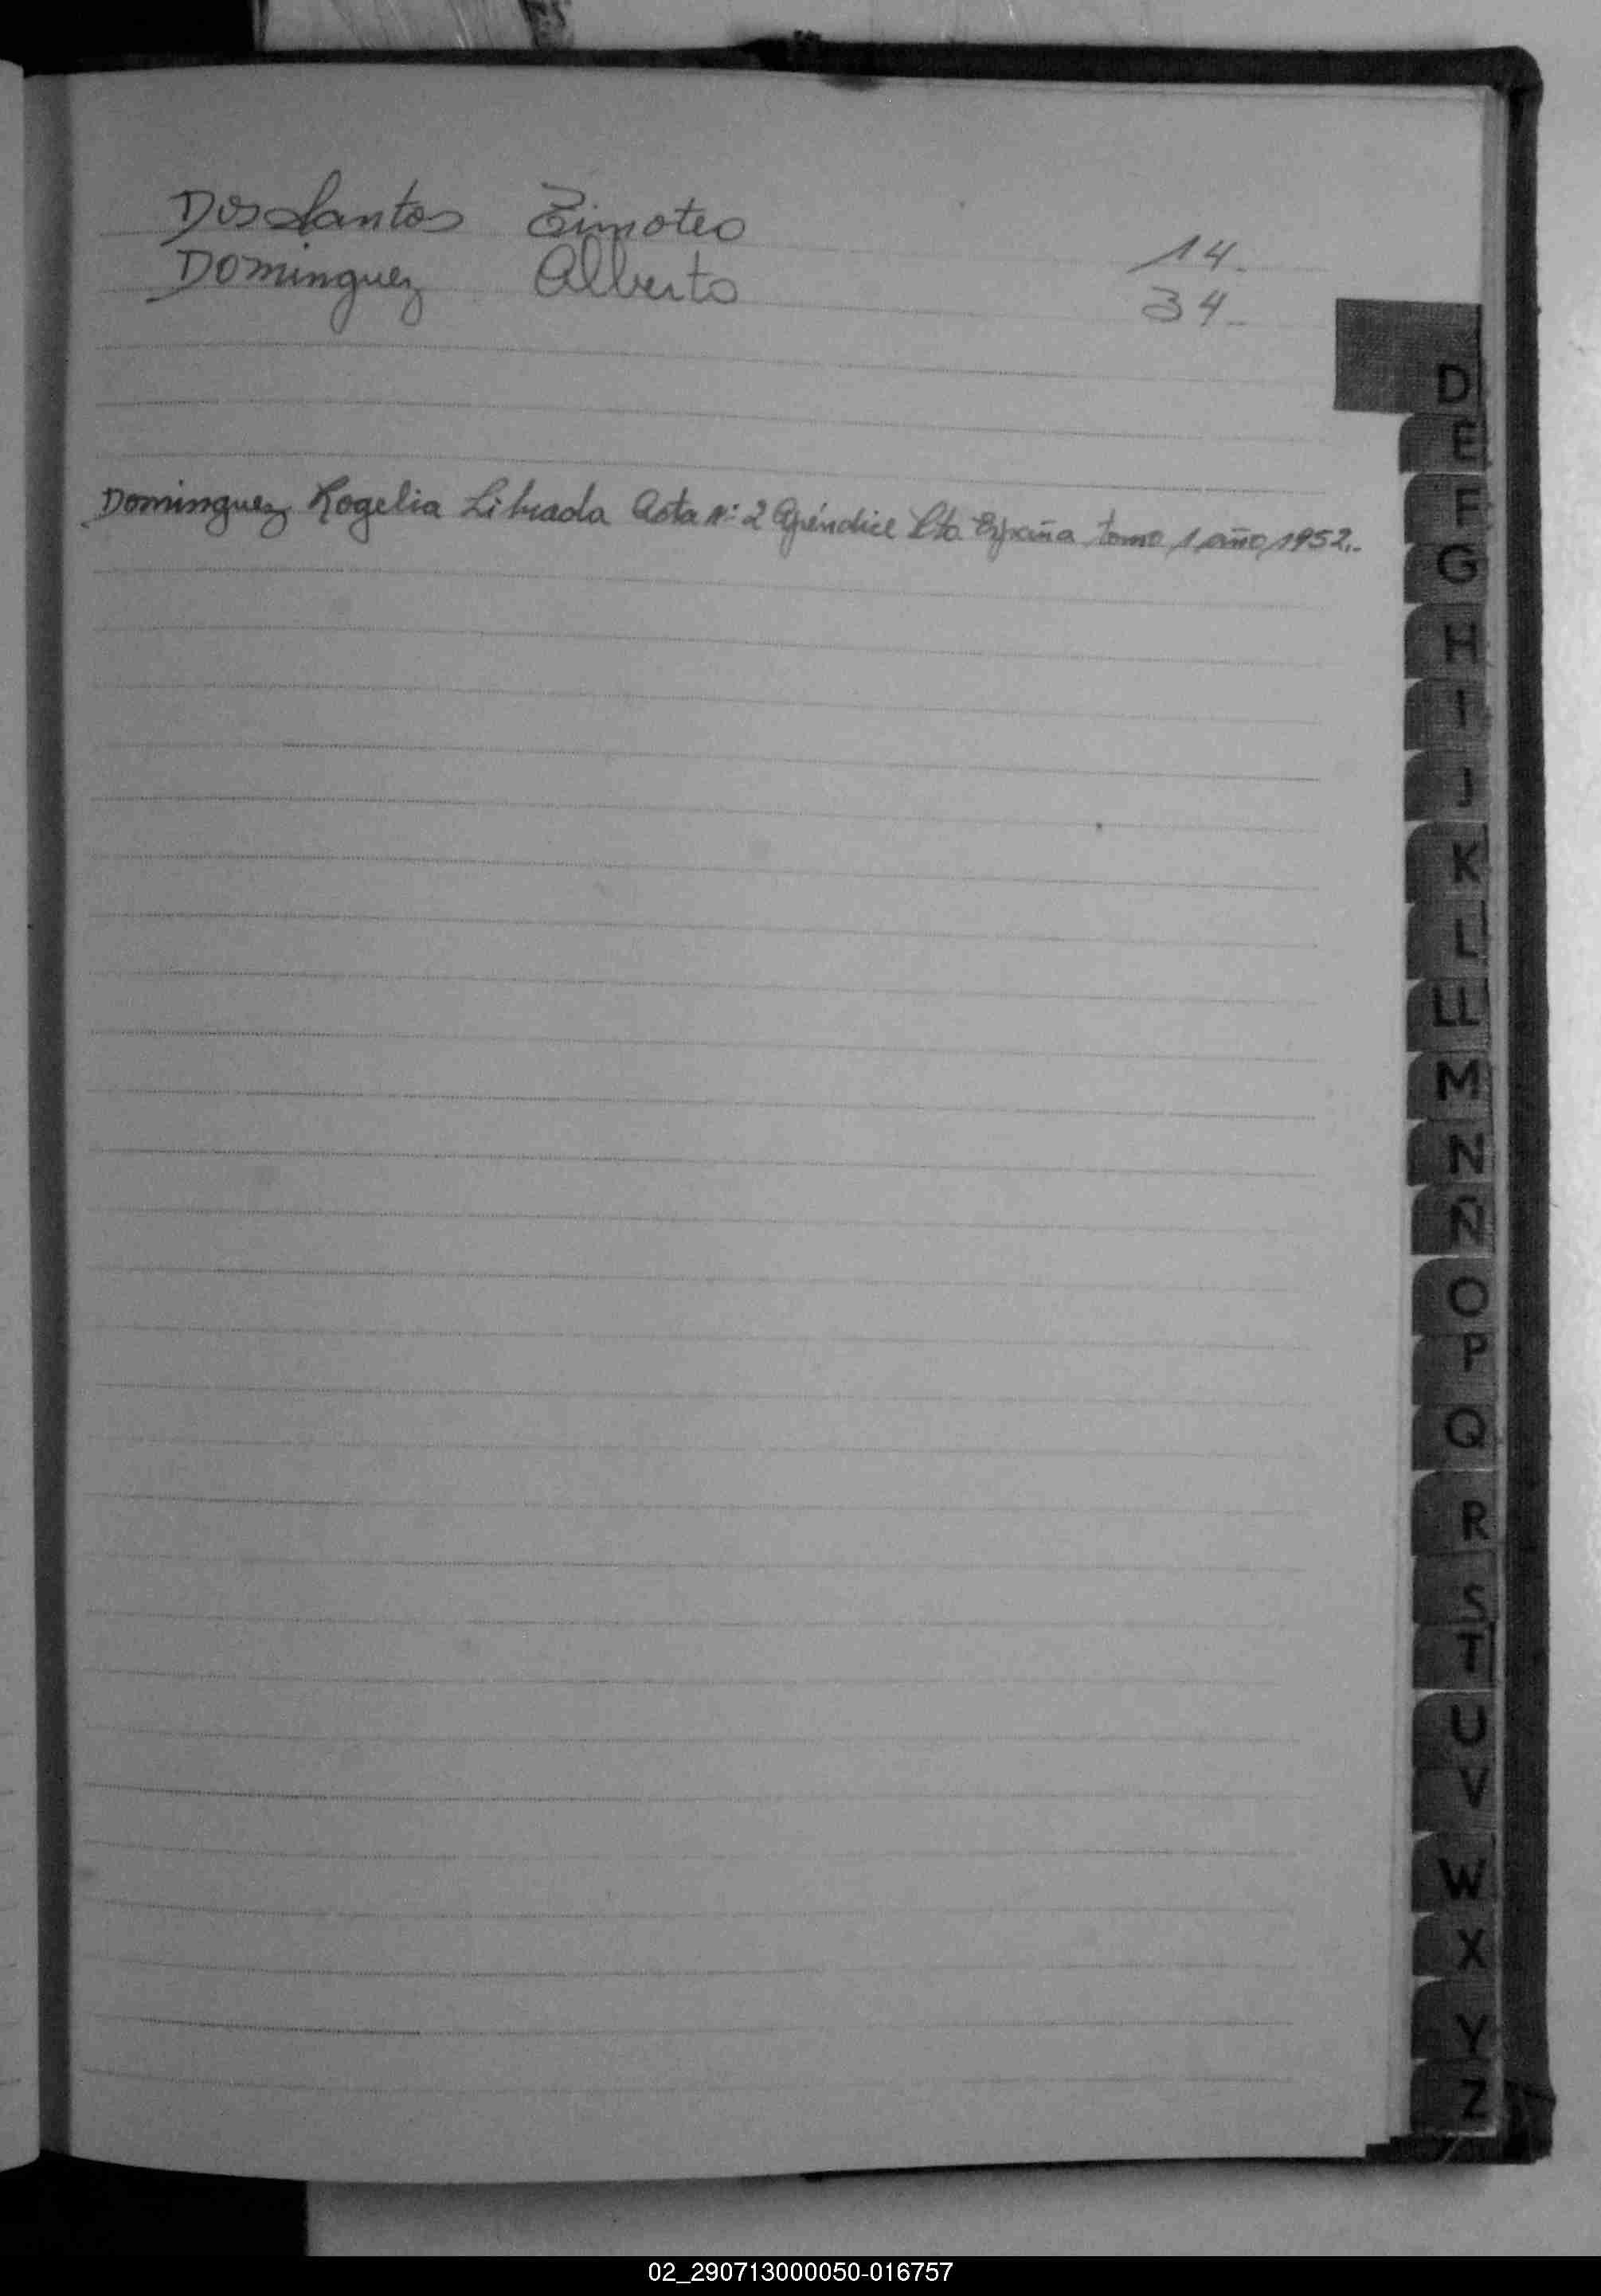 Dos Santos Timoteo 14.
Dominguez Alberto 34_
Dominguez Rogelia Librada Acta N: 2 Apéndice Pto España tomo 1 año 1952.-
D
E
F
G
H
I
J
K
L
LL
M
N
Ñ
O
P
Q
R
S
T
U
V
W
X
Y
Z
02_290713000050-016757